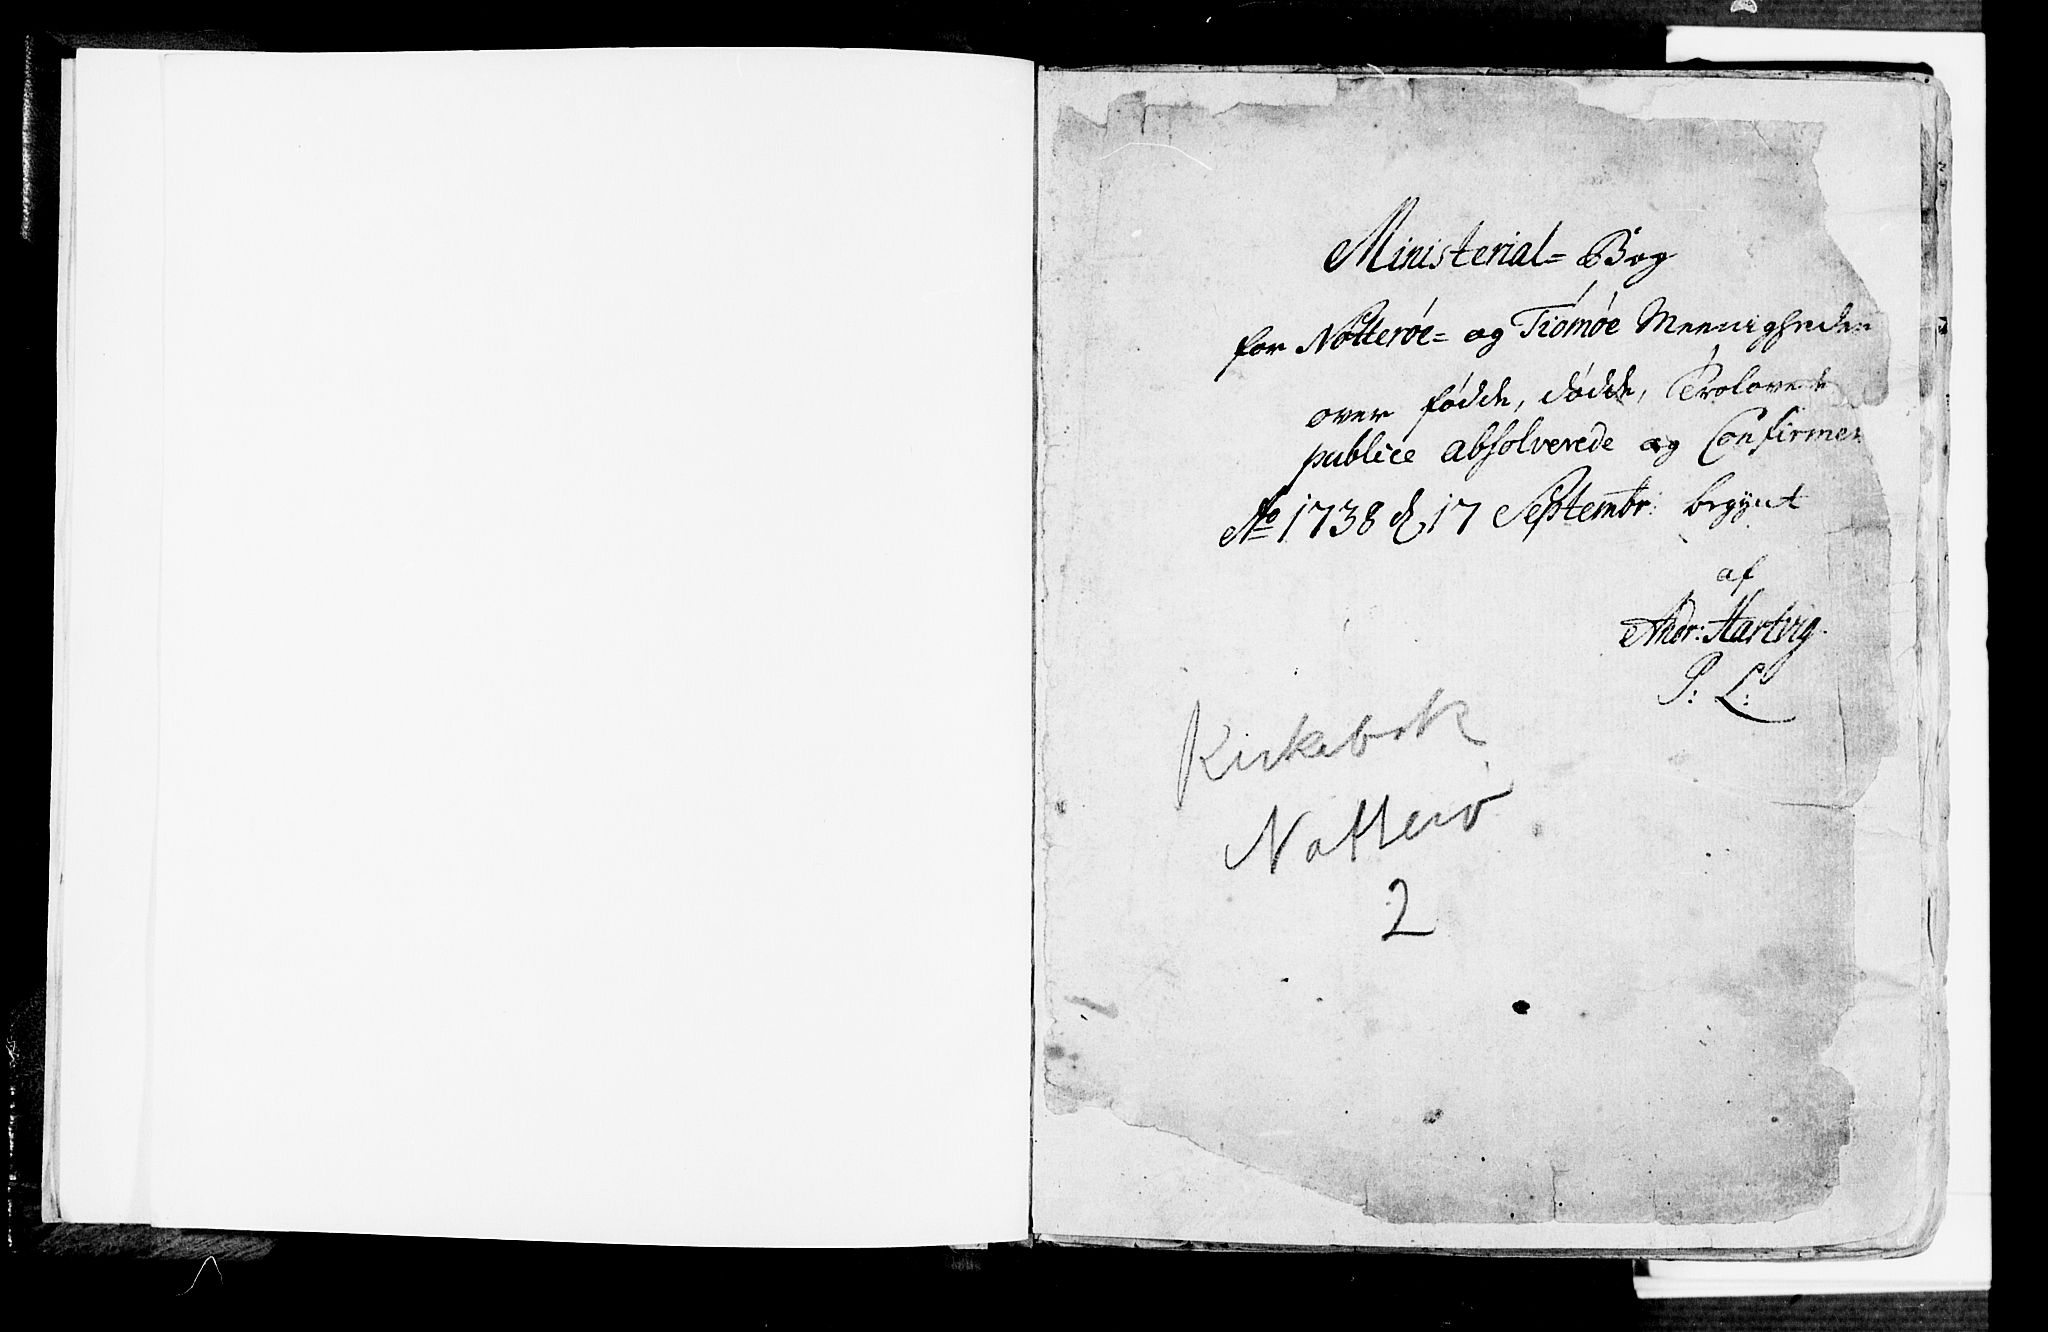 Ministerial= Bog
for Nøtterøe= og Tiømøe Meenigheder
over fødde, dødde, Trolovede
publice absolverede og Confirmer
Ao 1738 d. 17 Septembr: begynt
af
Andr: Hartvig.
P: L:
Kirkebok
Nøtterø
2